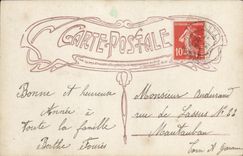 CARTE-POSTALE
10
Bonne et heureuse
Année à
toute la famille
Berthe Fourès
Monsieur Andurand
rue de Lassus Nº 22
Montauban
Tarn et Garonne